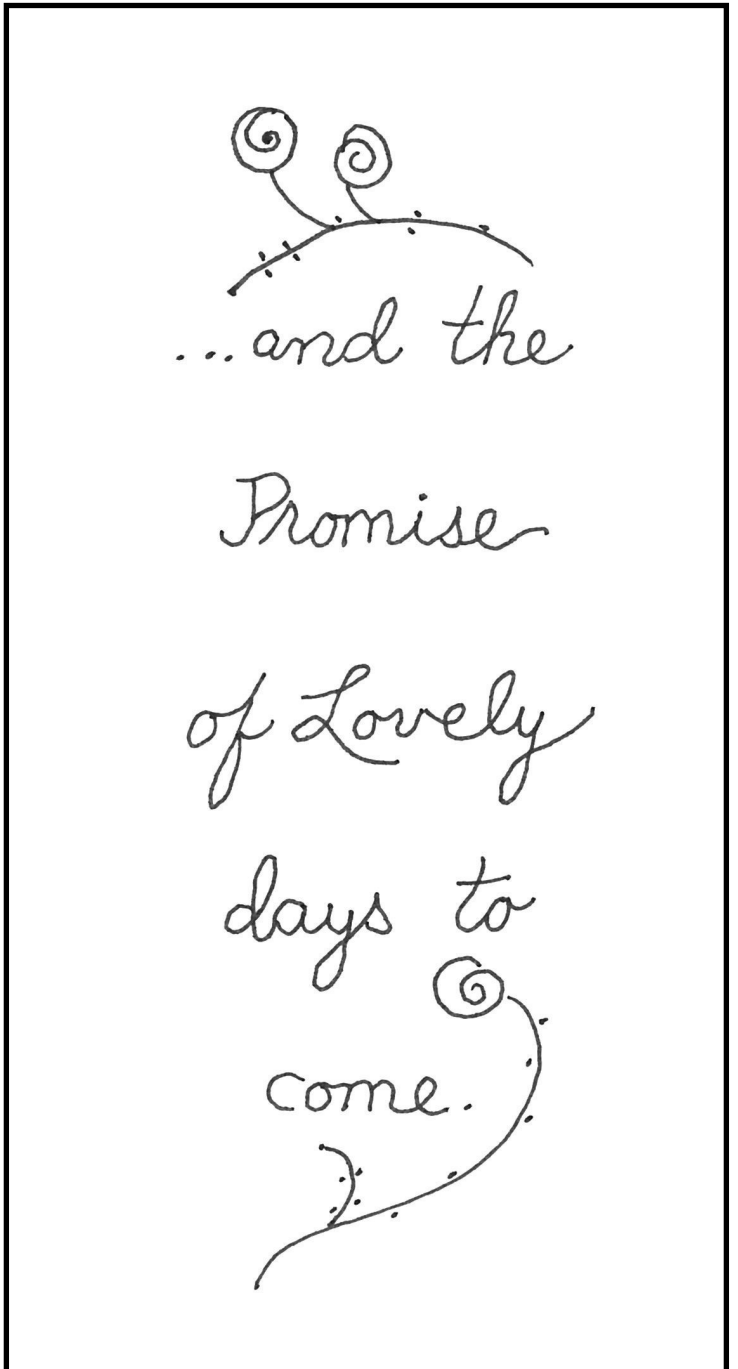 ...and the
Promise
of Lovely
days to
come.